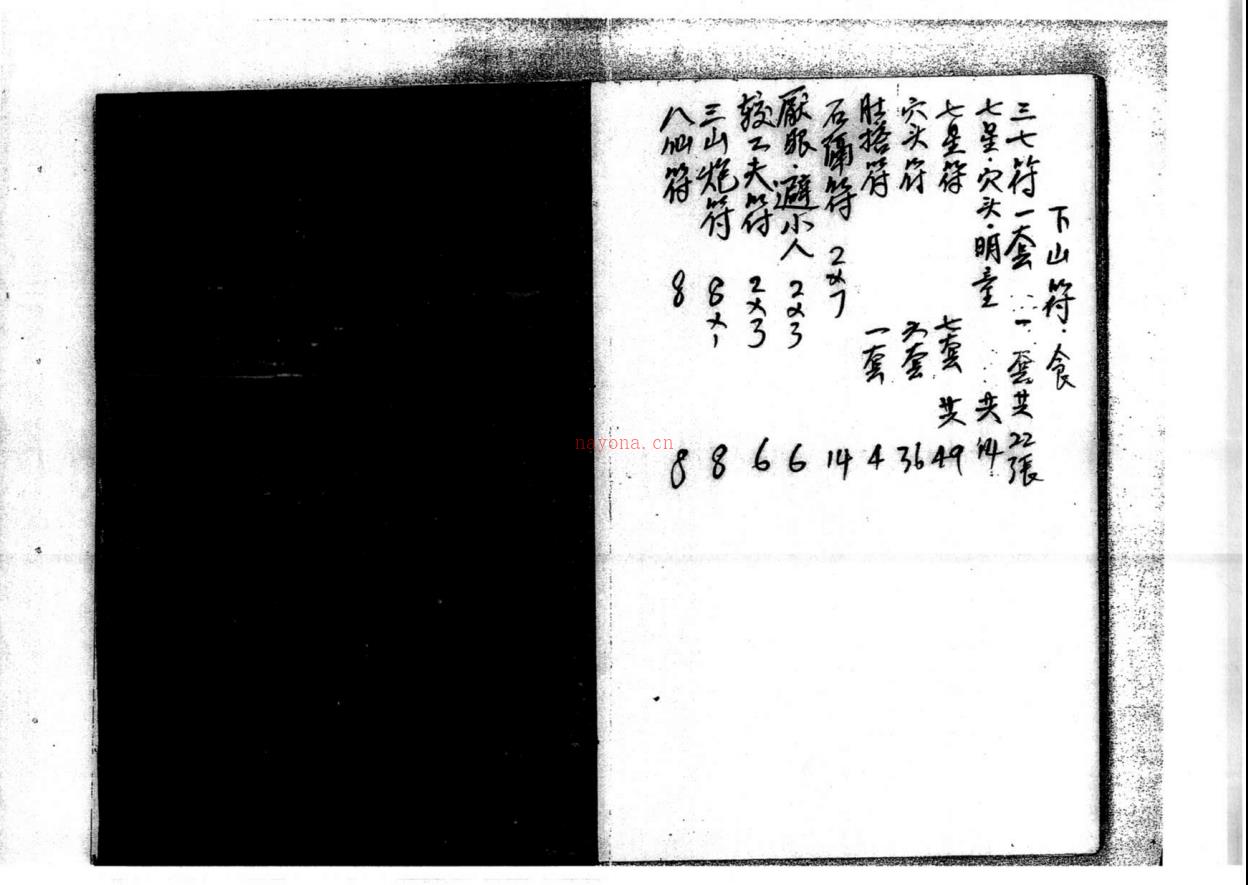 下山符·食
三七符一套 一套共22張
七星·穴头·明童 共14
七星符 七套 共49
穴头符 六套 36
肚搭符 一套 4
石隔符 2×7 14
厭眼·避小人 2×3 6
较工夫符 2×3 6
三山炮符 8×1 8
八仙符 8 8
nayona.cn